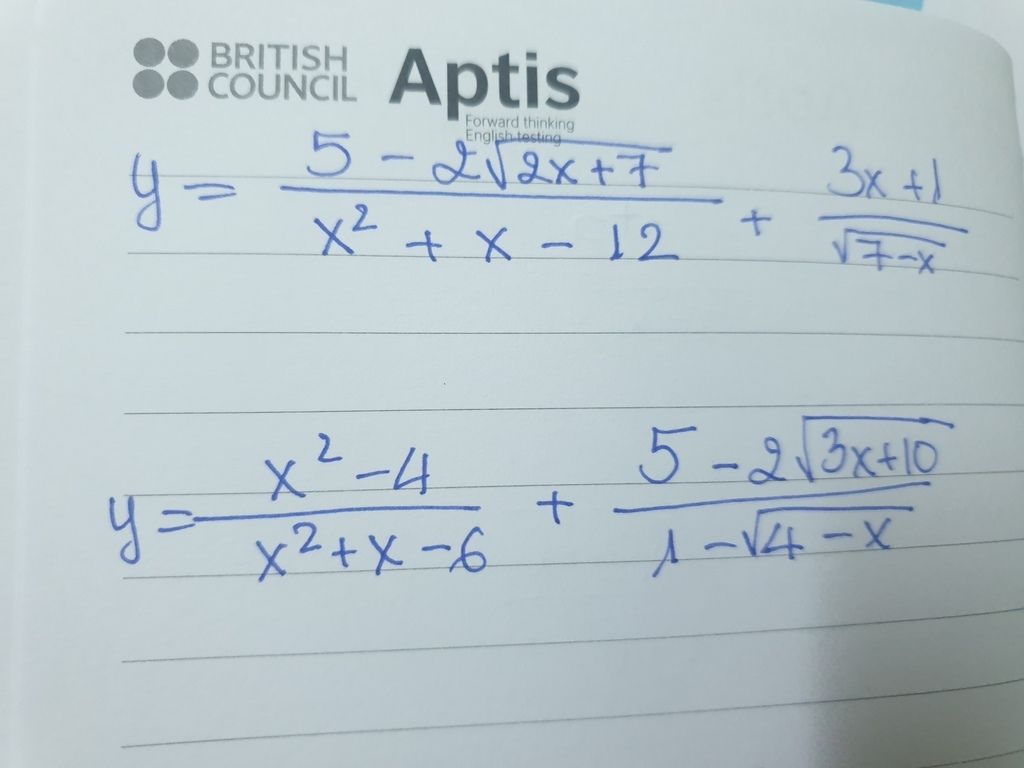 BRITISH COUNCIL Aptis
Forward thinking
English testing
y = \frac{5 - 2\sqrt{2x+7}}{x^2 + x - 12} + \frac{3x+1}{\sqrt{7-x}}
y = \frac{x^2 - 4}{x^2 + x - 6} + \frac{5 - 2\sqrt{3x+10}}{1 - \sqrt{4 - x}}